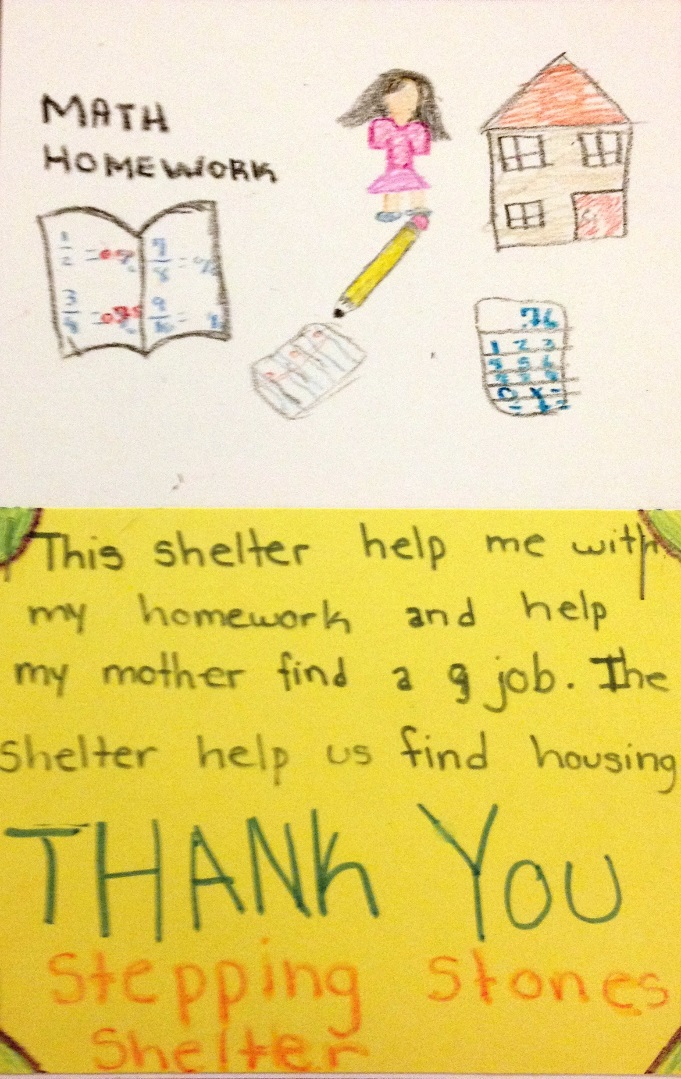 MATH
HOMEWORK
1/2 = 7/8 =
3/4 = 9/10 =
.76
1 2 3
This shelter help me with
my homework and help
my mother find a g job. The
Shelter help us find housing
THANK YOU
Stepping Stones
Shelter